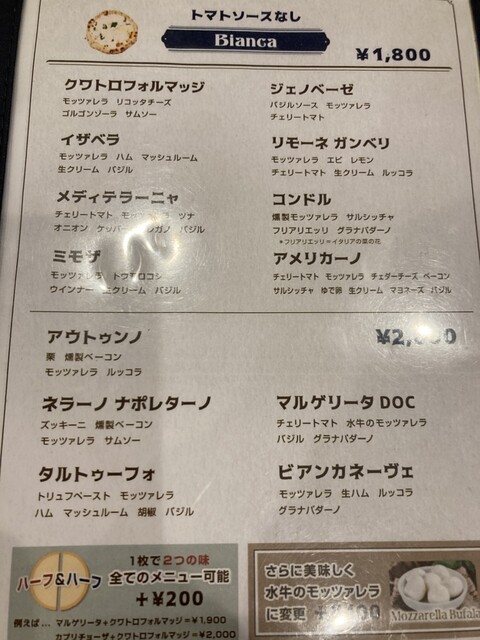 トマトソースなし
Bianca
¥1,800
クワトロフォルマッジ
モッツァレラ リコッタチーズ
ゴルゴンゾーラ サムソー
ジェノベーゼ
バジルソース モッツァレラ
チェリートマト
イザベラ
モッツァレラ ハム マッシュルーム
生クリーム バジル
リモーネ ガンベリ
モッツァレラ エビ レモン
チェリートマト 生クリーム ルッコラ
メディテラーニャ
チェリートマト ツナ
オニオン ケッパー バジル
コンドル
燻製モッツァレラ サルシッチャ
フリアリエッリ グラナパダーノ
*フリアリエッリ=イタリアの菜の花
ミモザ
モッツァレラ トウモロコシ
ウインナー 生クリーム バジル
アメリカーノ
チェリートマト モッツァレラ チェダーチーズ ベーコン
サルシッチャ ゆで卵 生クリーム マヨネーズ バジル
¥2,000
アウトゥンノ
栗 燻製ベーコン
モッツァレラ ルッコラ
ネラーノ ナポレターノ
ズッキーニ 燻製ベーコン
モッツァレラ サムソー
マルゲリータ DOC
チェリートマト 水牛のモッツァレラ
バジル グラナパダーノ
タルトゥーフォ
トリュフペースト モッツァレラ
ハム マッシュルーム 胡椒 バジル
ビアンカネーヴェ
モッツァレラ 生ハム ルッコラ
グラナパダーノ
ハーフ&ハーフ
1枚で2つの味
全てのメニュー可能
+¥200
例えば… マルゲリータ+クワトロフォルマッジ=¥1,900
カプリチョーザ+クワトロフォルマッジ=¥2,000
さらに美味しく
水牛のモッツァレラ
に変更
Mozzarella Bufala